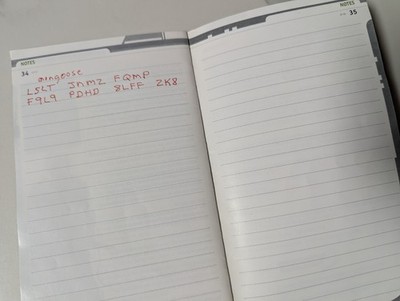 NOTES
34
mngoose
LSLT JNMZ FQMP
F9L9 PDHD 8LFF ZK8
NOTES
35